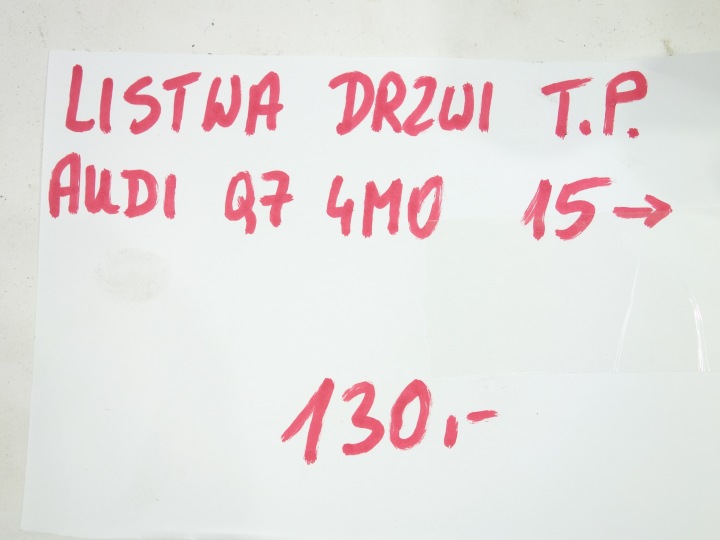 LISTWA DRZWI T.P.
AUDI Q7 4M0 15→
130,-